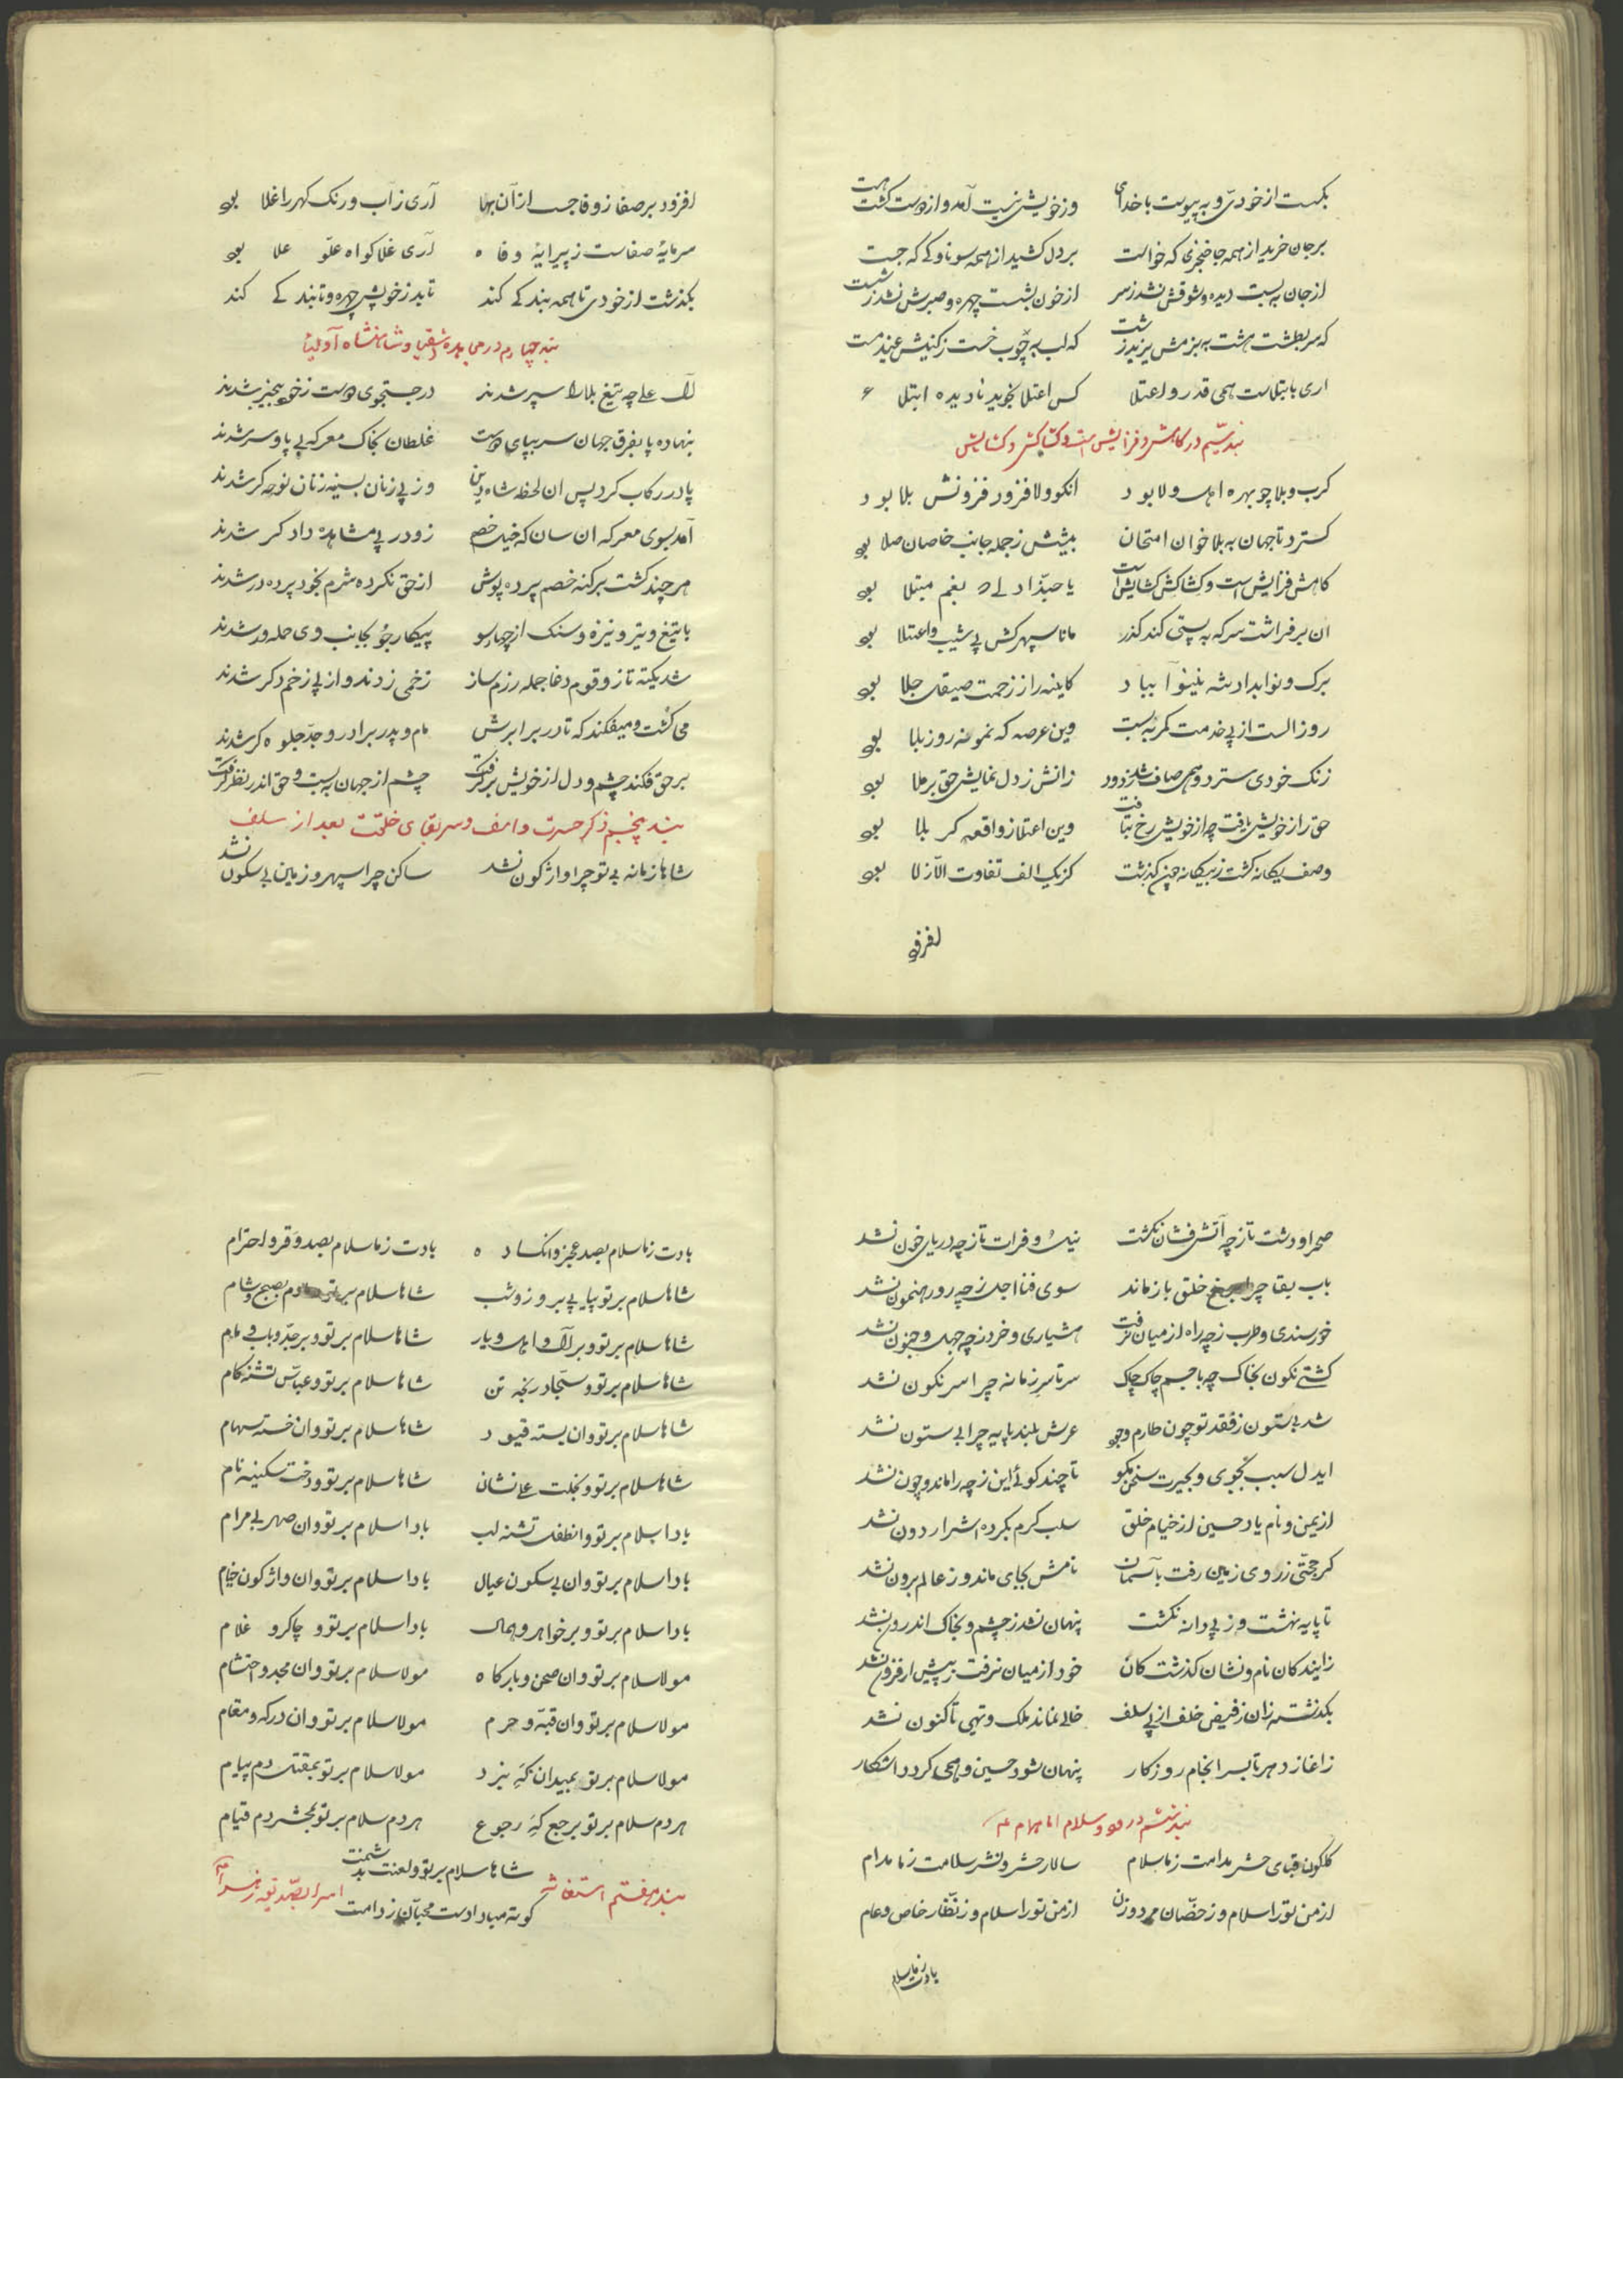 بگسست از خودی و به پیوست با خدای وز خویش نیست آمد و از دوست گشت هست
بر جان خرید از همه جا خنجری که خواست بر دل کشید از همه سو ناوکی که جست
از جان به بست دیده و شوقش نشد ز سر از خون بشست چهره و صبرش نشد ز شست
که سر بطشت هشت به بزمش یزید زشت که لب به چوب خست
اری بابتلاست همی قدر و اعتلا کس اعتلا نجوید نادیده ابتلا
بند سیم در کاهش و فزایش است و کشاکش و کشایش
کرب و بلا چو بهره اهل ولا بود انکو ولا فزود فزونش بلا بود
کسترد تا جهان به بلا خوان امتحان بیشش ز جمله جانب خاصان صلا بود
کاهش فزایش است و کشاکش کشایش است یا حبّذا دلی که بغم مبتلا بود
ان بر فراشت سر که به پستی کند کذر مانا سپهرکش پی شیب و اعتلا بود
برک و نوا بداد شه نینوا بباد کاینه را ز زحمت صیقل جلا بود
روز الست از پی خدمت کمر به بست وین عرصه که نمونه روز بلا بود
زنک خودی سترد و همی صاف شد ز دود زانش ز دل نمایش حق بر ملا بود
حق را ز خویش یافت چه از خویش رخ بتافت وین اعتلا ز واقعه کربلا بود
وصف یکانه کشت ز بیکانه چون گذشت کز یک الف تفاوت الّا ز لا بود
افزود
افزود بر صفا ز وفا جست از آن بها آری ز آب و رنک کهر را غلا بود
سرمایهٔ صفاست ز پیرایهٔ وفا آری غلا کواه علّو علا بود
بکذشت از خودی تا همه بندکی کند تابد ز خویش چهره و تابندکی کند
بند چهارم در مجاهده اشقیا و شاهنشاه اولیا
آل علی چه تیغ بلا را سپر شدند در جستجوی دوست ز خود بیخبر شدند
بنهاده پا بفرق جهان سر بپای دوست غلطان بخاک معرکه بی پا و سر شدند
پا در رکاب کرد پس ان لحظه شاه دین وز پی زنان بسینه زنان نوحه کر شدند
آمد بسوی معرکه ان سان که خیل خصم زو در پی مشاهدهٔ دادکر شدند
هر چند کشت بر کنه خصم پرده پوش از حق نکرده شرم بخود پرده در شدند
با تیغ و تیر و نیزه و سنک از چهار سو پیکار جُو بجانب وی حمله ور شدند
شد یکه تاز و قوم دغا جمله رزم ساز زخمی زدند و از پی زخم دکر شدند
می کشت و میفکند که تا در برابرش مام و پدر برادر و جدّ جلوه کر شدند
بر حق فکند چشم و دل از خویش بر کرفت چشم از جهان به بست و حق اندر نظر کرفت
بند پنجم ذکر حسرت و اسف و سر بقای خلقت بعد از سلف
شاها زمانه بی تو چرا واژکون نشد ساکن چرا سپهر و زمین بی سکون نشد
صحرا و دشت تاز چه آتش فشان نکشت نیل و فرات تاز چه دریای خون نشد
باب بقا چرا برخ خلق باز ماند سوی فنا اجل ز چه رو رهنمون نشد
خورسندی و طرب ز چه راه از میان نرفت هشیاری و خرد ز چه جهل و جنون نشد
کشتی نکون بخاک چه با جسم چاک چاک سرتاسر زمانه چرا سرنکون نشد
شد بی ستون ز فقد تو چون طارم وجود عرش بلند پایه چرا بی ستون نشد
ایدل سبب نجوی و بحیرت سخن مکو تا چند کوئی این ز چه را ماند و چون نشد
از یمن و نام یاد حسین از خیام خلق سلب کرم بکرده اشرار دون نشد
کر حجّتی ز روی زمین رفت باسمان نامش بجای ماند و ز عالم برون نشد
تا پایه نهشت و ز پی دانه نکشت پنهان نشد ز چشم و بخاک اندرون نشد
زایندکان نام و نشان کذشتکان خود از میان نرفت ز پیش ار فزون نشد
بکذشته زان ز فیض خلف از پی سلف خالی نماند ملک و تهی تا کنون نشد
زاغاز دهر تا بسر انجام روزکار پنهان نشود حسین و همی کردد اشکار
بند ششم در درود و سلام امام همام
کلکون قبای حشر مدامت ز ما سلام سالار حشر و نشر سلامت ز ما مدام
از من تو را سلام و ز حضّان مرد و زن از من تو را سلام و ز نظّار خاص و عام
بادت ز ما سلام
بادت ز ما سلام بصد عجز و انکسار بادت ز ما سلام بصد وقر و احترام
شاها سلام بر تو پیاپی بروز و شب شاها سلام بر تو دمادم بصبح و شام
شاها سلام بر تو و بر آل و اهل و یار شاها سلام بر تو و بر جدّ و باب و مام
شاها سلام بر تو و سجّاد رنجه تن شاها سلام بر تو و عباس تشنه کام
شاها سلام بر تو و ان بسته قیود شاها سلام بر تو و ان خسته سهام
شاها سلام بر تو و نجلت علی نشان شاها سلام بر تو و دخت سکینه نام
بادا سلام بر تو و انطفل تشنه لب بادا سلام بر تو و ان صهر بی مرام
بادا سلام بر تو و ان بی سکون عیال بادا سلام بر تو و ان واژکون خیام
بادا سلام بر تو و بر خواهر و همال بادا سلام بر تو و چاکر و غلام
مولا سلام بر تو و ان صحن و بارکاه مولا سلام بر تو و ان مجد و احتشام
مولا سلام بر تو و ان قبّه و حرم مولا سلام بر تو و ان درکه و مقام
مولا سلام بر تو بمیدان کهٔ نبرد مولا سلام بر تو بمقتل دم پیام
هر دم سلام بر تو برجع کهٔ رجوع هر دم سلام بر تو بمحشر دم قیام
شاها سلام بر تو و لعنت بد شمنت
کوته مبادا دست محبّان ز دامنت
بند هفتم استغاثه